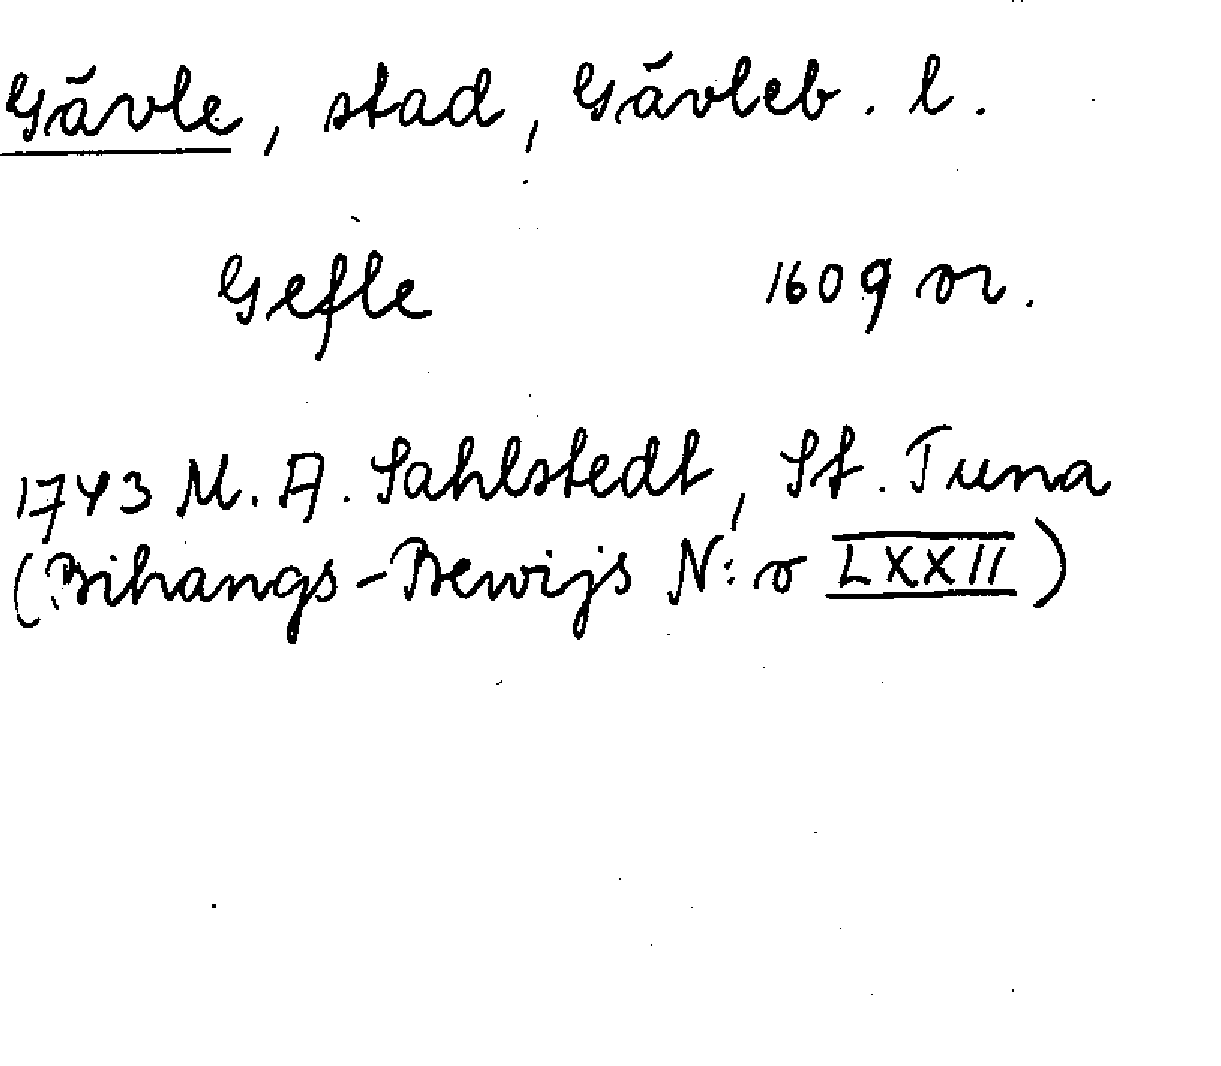 Gävle, stad, Gävleb. l.
Gefle 1609 or.
1743 M. A. Sahlstedt, St. Tuna
(Bihangs-Bewijs N:o LXXII)